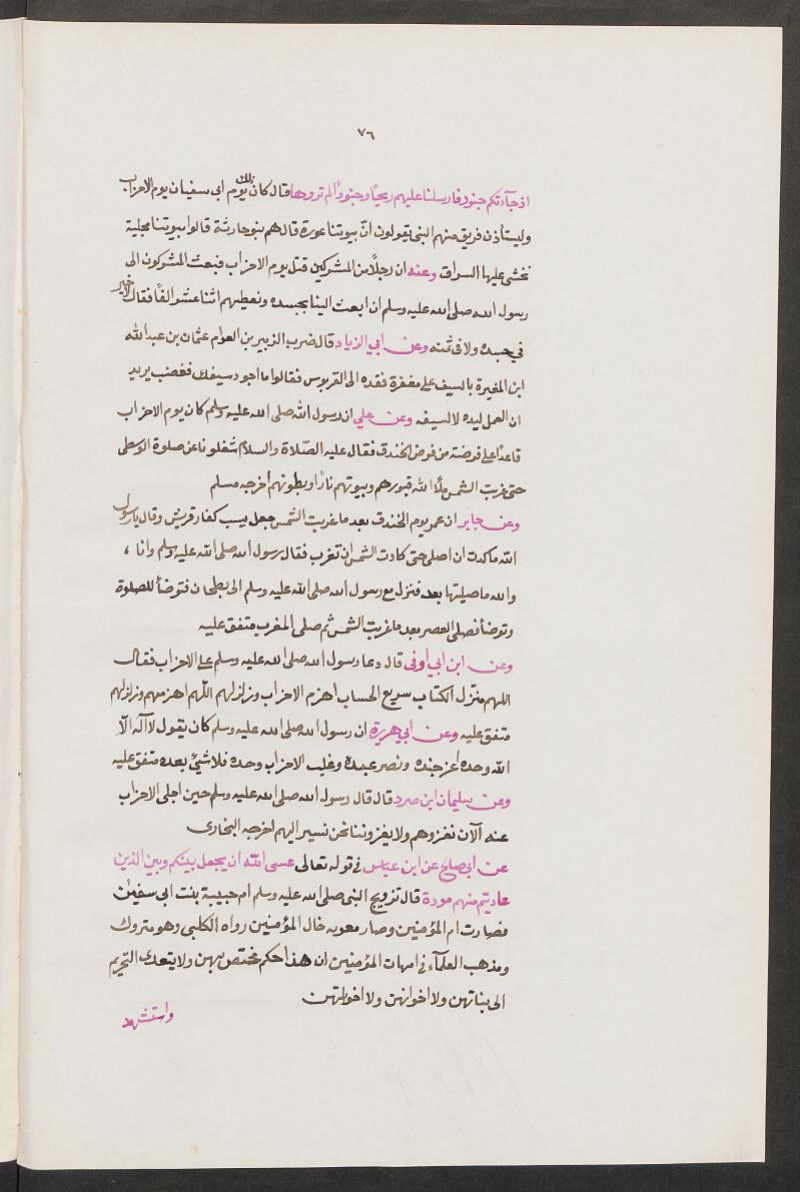 ٧٦
اذ جآءتكم جنود فارسلنا عليهم ريحًا وجنودًا لم تروها قال كان ذلك يوم ابى سفيان يوم الاحزاب
وليستأذن فريق منهم النبى يقولون ان بيوتنا عورة قال هم بنو حارثة قالوا بيوتنا مخلية
نخشى عليها السراق وعنه ان رجلاً من المشركين قتل يوم الاحزاب فبعث المشركون الى
رسول الله صلى الله عليه وسلم ان ابعث الينا بجسده ونعطيهم اثنا عشر الفًا فقال لا خير
فى جسده ولا فى ثمنه وعن ابي الزياد قال ضرب الزبير بن العوام عثمان بن عبد الله
ابن المغيرة بالسيف على مغفرة فقده الى القربوس فقالوا ما اجود سيفك فغضب يريد
ان العمل ليده لا لسيفه وعن علي ان رسول الله صلى الله عليه وسلم كان يوم الاحزاب
قاعدًا على فرضة من فرض الخندق فقال عليه الصّلاة والسلام شغلونا عن صلوة الوسطى
حتى غربت الشمس ملأ الله قبورهم وبيوتهم نارًا وبطونهم أخرجه مسلم
وعن جابر ان عمر يوم الخندق بعد ما غربت الشمس جعل يسب كفار قريش وقال يا رسول
الله ما كدت ان اصلى حتى كادت الشمس ان تغرب فقال رسول الله صلى الله عليه وسلم وانا ،
والله ما صليتها بعد فنزل مع رسول الله صلى الله عليه وسلم الى بطحان فتوضأ للصلوة
وتوضأ فصلى العصر بعد ما غربت الشمس ثم صلى المغرب متفق عليه
وعن ابن ابي أوفى قال دعا رسول الله صلى الله عليه وسلم على الاحزاب فقال
اللهم منزل الكتاب سريع الحساب اهزم الاحزاب وزلزلهم اللهم اهزمهم وزلزلهم
متفق عليه وعن ابي هريرة ان رسول الله صلى الله عليه وسلم كان يقول لا آله الّا
الله وحده أعز جنده ونصر عبده وغلب الاحزاب وحده فلا شئ بعده متفق عليه
وعن سليمان ابن صرد قال قال رسول الله صلى الله عليه وسلم حين اجلى الاحزاب
عنه آلآن نغزوهم ولا يغزوننا نحن نسير اليهم اخرجه البخارى
عن ابى صلح عن ابن عباس فى قوله تعالى عسى الله ان يجعل بينكم وبين الذين
عاديتم منهم مودة قال تزويج النبى صلى الله عليه وسلم ام حبيبة بنت ابى سفين
فصارت ام المؤمنين وصار معويه خال المؤمنين رواه الكلبى وهو متروك
ومذهب العلمآء فى امهات المؤمنين ان هذا حكم مختص بهن ولا يتعدى التحريم
الى بناتهن ولا اخوانهن ولا اخواتهن
واستشهد